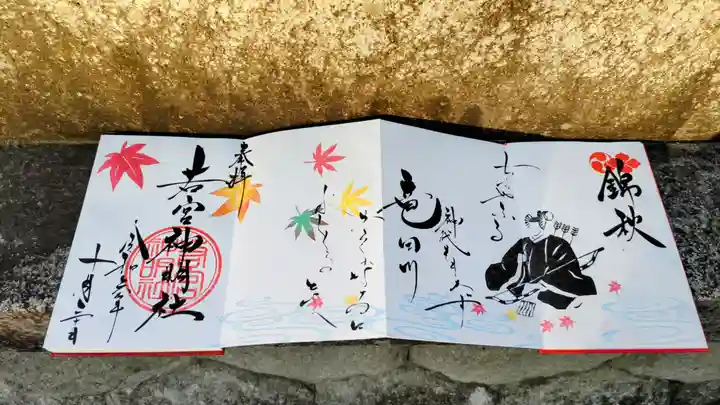 錦秋
ちはやふる
神代もきかず
竜田川
からくれなゐに
水くくるとは
奉拝
若宮神明社
十月